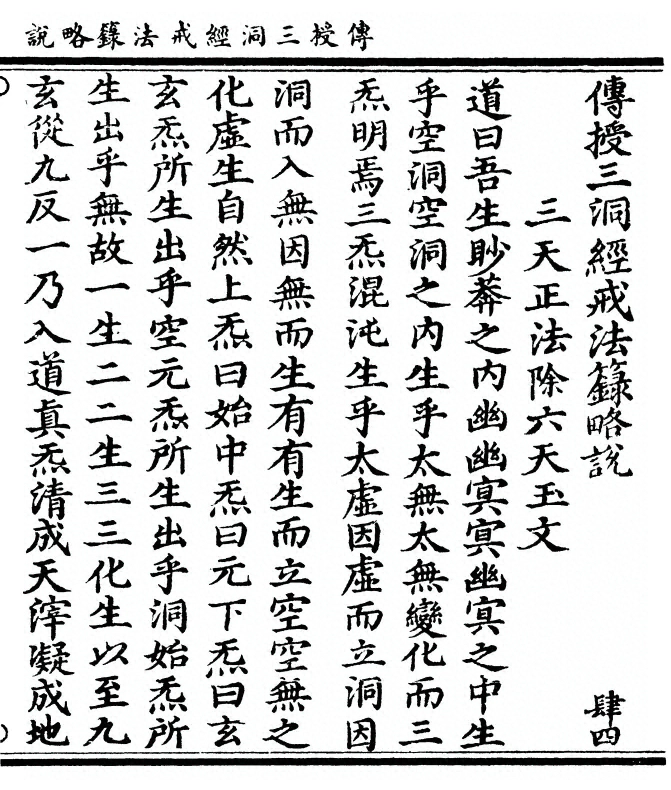 傳授三洞經戒法籙略說
傳授三洞經戒法籙略說
肆四
三天正法除六天玉文
道曰吾生眇莽之內幽幽冥冥幽冥之中生
乎空洞空洞之內生乎太無太無變化而三
炁明焉三炁混沌生乎太虛因虛而立洞因
洞而入無因無而生有有生而立空空無之
化虛生自然上炁曰始中炁曰元下炁曰玄
玄炁所生出乎空元炁所生出乎洞始炁所
生出乎無故一生二二生三三化生以至九
玄從九反一乃入道真炁清成天滓凝成地